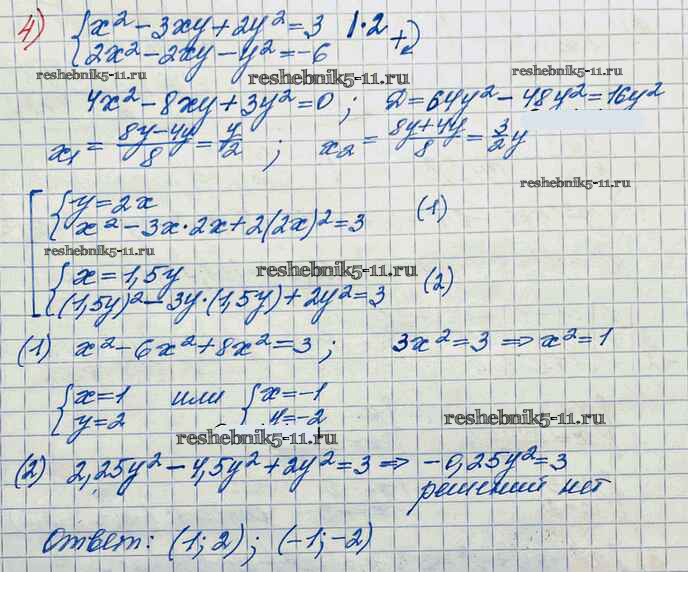 4) { x² - 3xy + 2y² = 3 | · 2
{ 2x² - 2xy - y² = -6 +
reshebnik5-11.ru reshebnik5-11.ru reshebnik5-11.ru
4x² - 8xy + 3y² = 0 ; D = 64y² - 48y² = 16y²
x₁ = (8y - 4y)/8 = y/2 ; x₂ = (8y + 4y)/8 = 3/2 y
reshebnik5-11.ru
[ { y = 2x
{ x² - 3x · 2x + 2(2x)² = 3 (1)
reshebnik5-11.ru reshebnik5-11.ru
{ x = 1,5y
{ (1,5y)² - 3y · (1,5y) + 2y² = 3 (2)
(1) x² - 6x² + 8x² = 3 ; 3x² = 3 ⇒ x² = 1
{ x = 1 или { x = -1
{ y = 2 { y = -2
reshebnik5-11.ru reshebnik5-11.ru
(2) 2,25y² - 4,5y² + 2y² = 3 ⇒ -0,25y² = 3
решений нет
Ответ: (1; 2) ; (-1; -2)